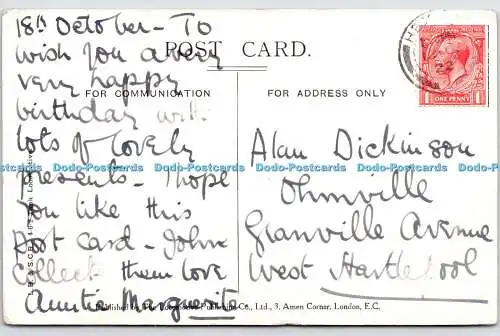 18th October - To
wish you a very
very happy
birthday with
lots of lovely
presents - I hope
you like this
post card - John
collects them Love
Auntie Marguerite
POST CARD.
FOR COMMUNICATION
FOR ADDRESS ONLY
Alan Dickinson
Ohmville
Granville Avenue
West Hartlepool
1 ONE PENNY 1
Dodo-Postcards Dodo-Postcards Dodo-Postcards Dodo-Postcards Dodo-Postcards Dodo-Postcards
Published by The Locomotive Publishing Co., Ltd., 3, Amen Corner, London, E.C.